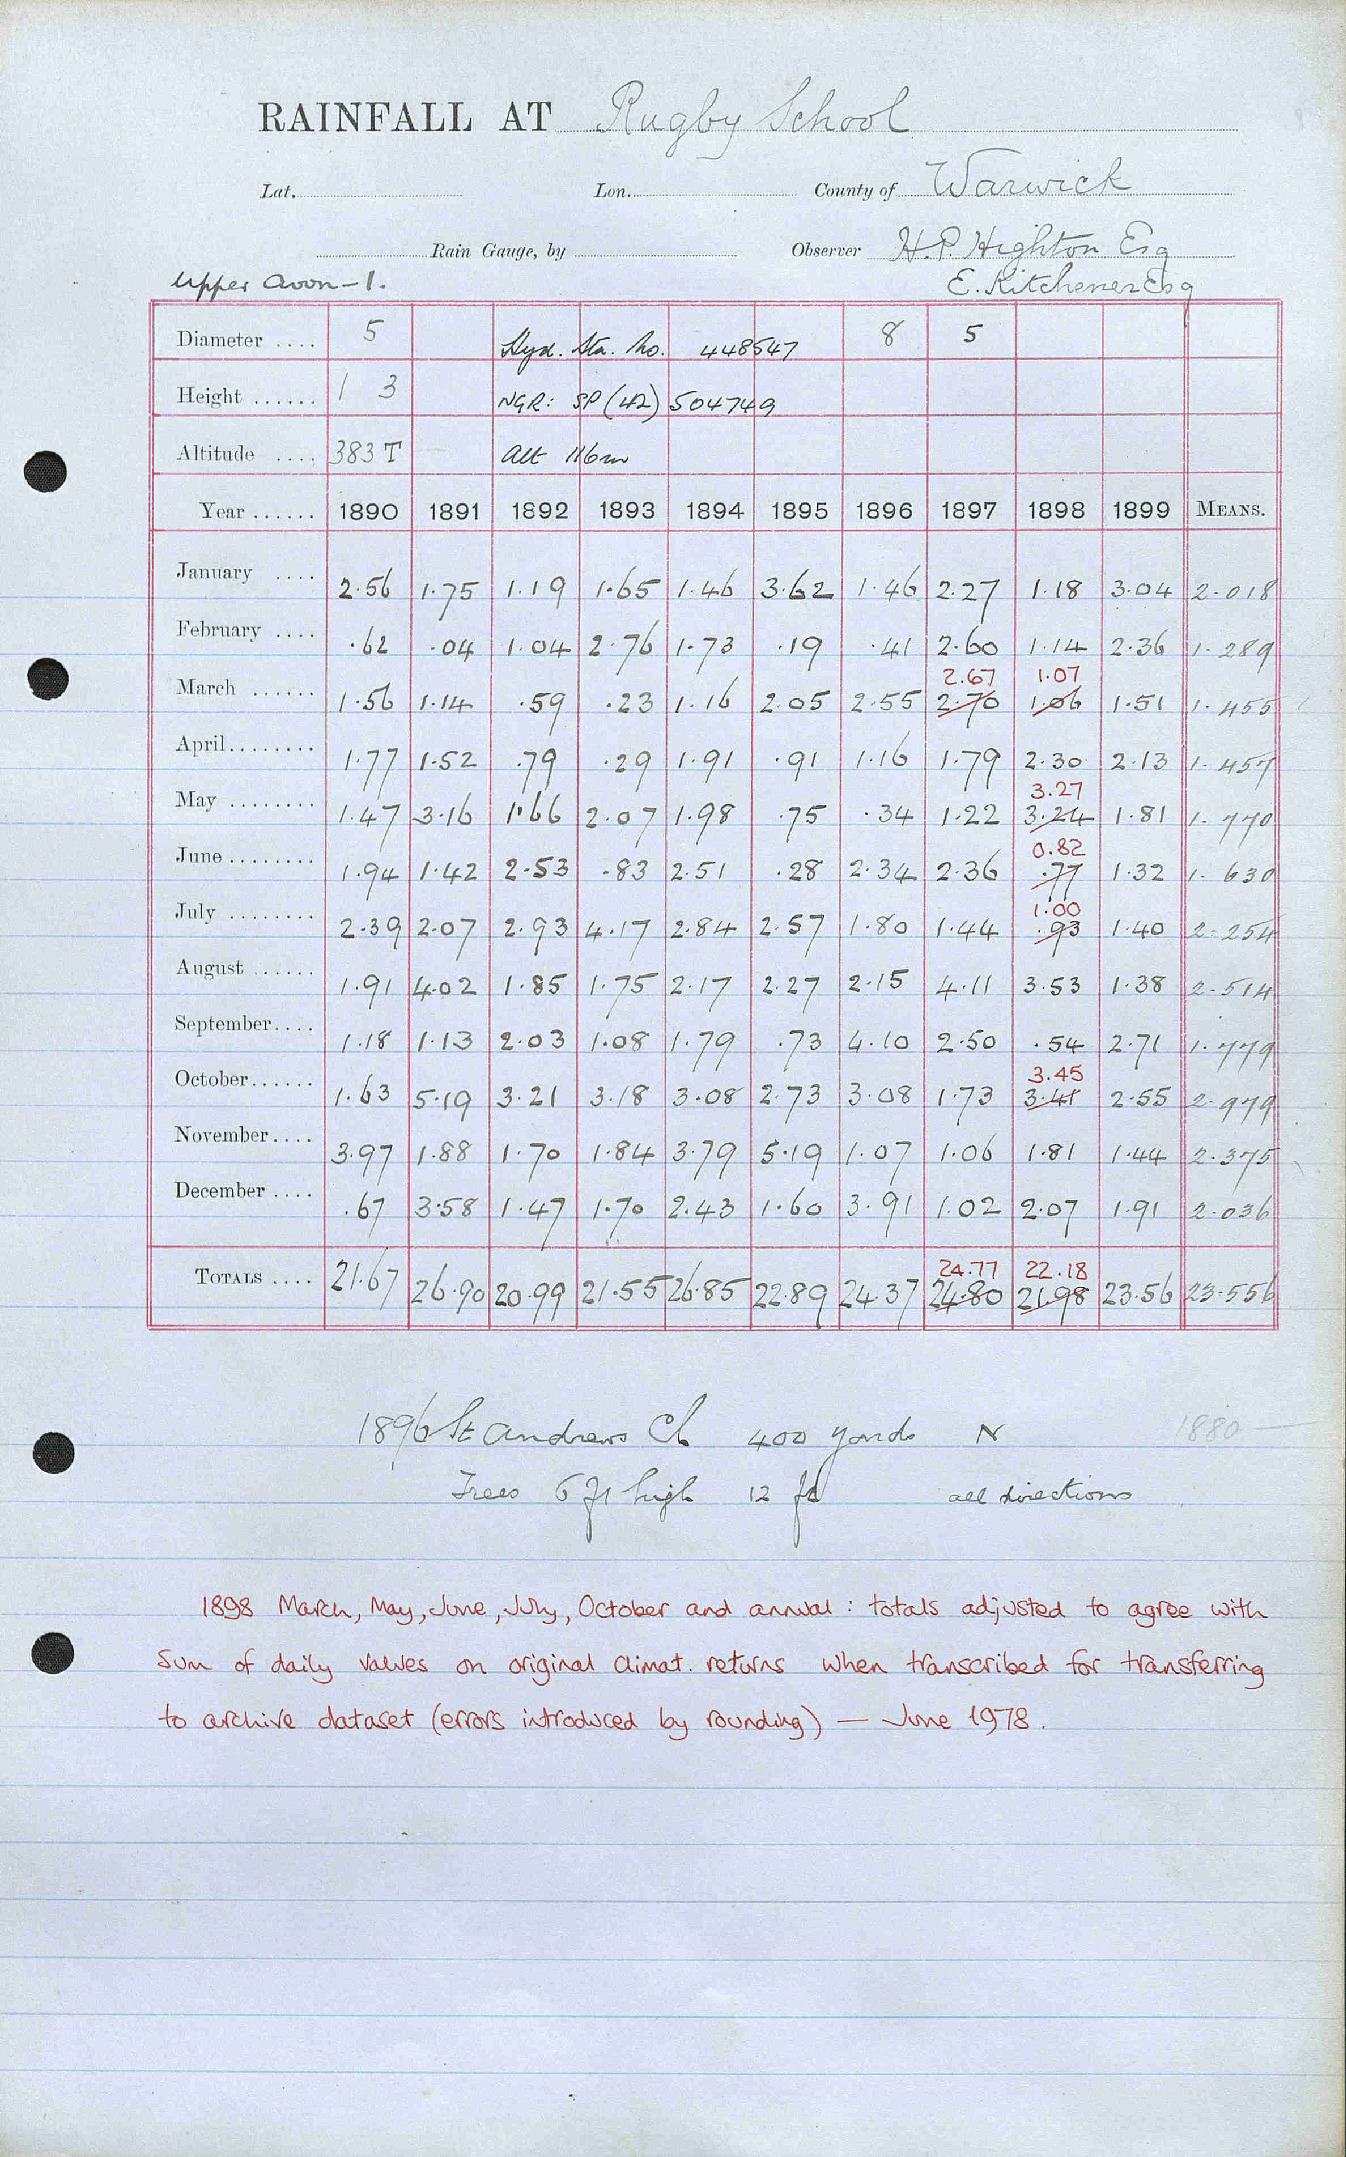 RAINFALL AT Rugby School
Lat. Lon. County of Warwick
Rain Gauge, by Observer H.P. Highton Esq
Upper Avon - 1. E. Kitchener Esq
Diameter .... 5 Hyd. Sta. No. 448547 8 5
Height ...... 1 3 NGR: SP (42) 504749
Altitude .... 383 T Alt 116m
Year ...... 1890 1891 1892 1893 1894 1895 1896 1897 1898 1899 MEANS.
January .... 2.56 1.75 1.19 1.65 1.46 3.62 1.46 2.27 1.18 3.04 2.018
February .... .62 .04 1.04 2.76 1.73 .19 .41 2.60 1.14 2.36 1.289
2.67 1.07
March ...... 1.56 1.14 .59 .23 1.16 2.05 2.55 2.70 1.06 1.51 1.455
April........ 1.77 1.52 .79 .29 1.91 .91 1.16 1.79 2.30 2.13 1.457
3.27
May ........ 1.47 3.16 1.66 2.07 1.98 .75 .34 1.22 3.24 1.81 1.770
0.82
June ........ 1.94 1.42 2.53 .83 2.51 .28 2.34 2.36 .77 1.32 1.630
1.00
July ........ 2.39 2.07 2.93 4.17 2.84 2.57 1.80 1.44 .93 1.40 2.254
August ...... 1.91 4.02 1.85 1.75 2.17 2.27 2.15 4.11 3.53 1.38 2.514
September.... 1.18 1.13 2.03 1.08 1.79 .73 4.10 2.50 .54 2.71 1.779
3.45
October...... 1.63 5.19 3.21 3.18 3.08 2.73 3.08 1.73 3.41 2.55 2.979
November.... 3.97 1.88 1.70 1.84 3.79 5.19 1.07 1.06 1.81 1.44 2.375
December .... .67 3.58 1.47 1.70 2.43 1.60 3.91 1.02 2.07 1.91 2.036
24.77 22.18
TOTALS .... 21.67 26.90 20.99 21.55 26.85 22.89 24.37 24.80 21.98 23.56 23.556
1896 St Andrews Ch 400 yards N 1880 —
Trees 6 ft high 12 ft all directions
1898 March, May, June, July, October and annual : totals adjusted to agree with
sum of daily values on original climat. returns when transcribed for transferring
to archive dataset (errors introduced by rounding) — June 1978.